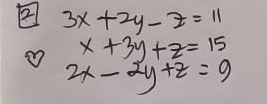 2 3x + 2y - z = 11
x + 3y + z = 15
2x - 2y + z = 9